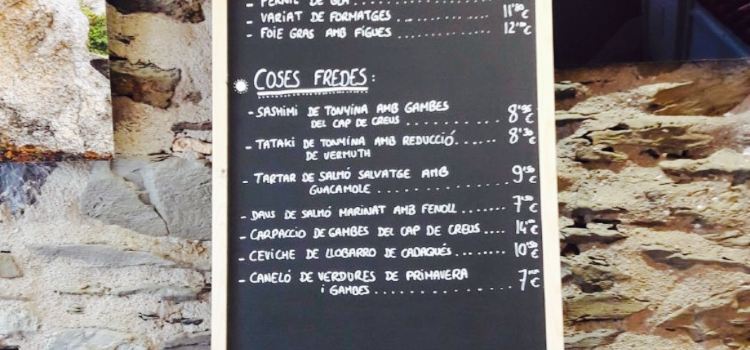 - PERNIL DE GLA
- VARIAT DE FORMATGES .......... 11'80 €
- FOIE GRAS AMB FIGUES .......... 12'00 €
COSES FREDES:
- SASHIMI DE TONYINA AMB GAMBES
DEL CAP DE CREUS .......... 8'95 €
- TATAKI DE TONYINA AMB REDUCCIÓ ..... 8'30 €
DE VERMUTH
- TARTAR DE SALMÓ SALVATGE AMB
GUACAMOLE .......... 9'50 €
- DAUS DE SALMÓ MARINAT AMB FENOLL ....... 7'50 €
- CARPACCIO DE GAMBES DEL CAP DE CREUS .... 14'00 €
- CEVICHE DE LLOBARRO DE CADAQUÉS ....... 10'50 €
- CANELÓ DE VERDURES DE PRIMAVERA
i GAMBES .......... 7 €